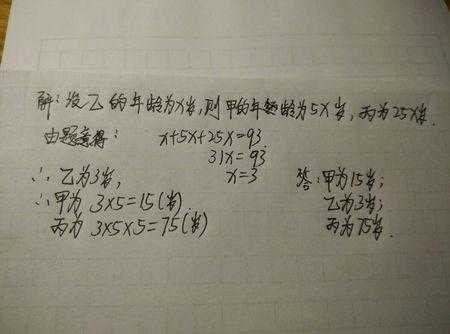 解:设乙的年龄为x岁,则甲的年龄为5x岁,丙为25x岁.
由题意得: x+5x+25x=93
31x=93
∴ 乙为3岁, x=3
∴甲为 3×5=15(岁)
丙为 3×5×5=75(岁)
答:甲为15岁;
乙为3岁;
丙为75岁.